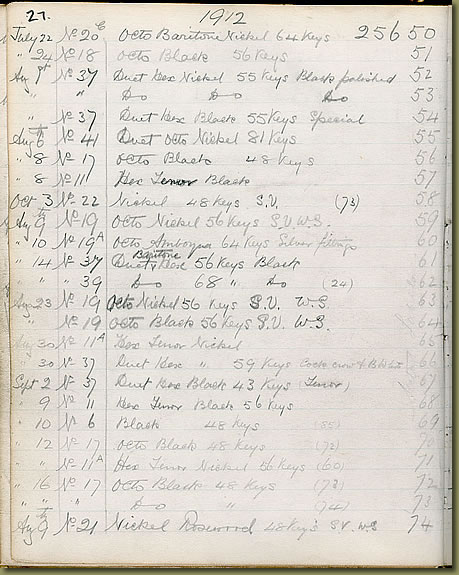 27. 1912
July 22 No 20c Octo Baritone Nickel 64 Keys 25650
" 24 No 18 Octo Black 56 Keys 51
Aug 1st No 37 Duet Hex Nickel 55 Keys Black polished 52
" " Do Do Do 53
No 37 Duet Hex Black 55 Keys Special 54
Aug 6th No 41 Duet Octo Nickel 81 Keys 55
" 8 No 17 Octo Black 48 Keys 56
" 8 No 11 Hex Tenor Black 57
Oct 3 No 22 Nickel 48 Keys S.V. (73) 58
Aug 9th No 19 Octo Nickel 56 Keys S.V. W.S. 59
" 10 No 19A Octo Amboyna 64 Keys Silver fittings 60
" 14 No 37 Duet Baritone Hex 56 Keys Black 61
" " No 39 Do 68 " Do (24) 62
Aug 23 No 19 Octo Nickel 56 Keys S.V. W.S. 63
" No 19 Octo Black 56 Keys S.V. W.S. 64
Aug 30 No 11A Hex Tenor Nickel 65
30 No 37 Duet Hex " 59 Keys Cock crow & 66
Sept 2 No 37 Duet Hex Black 43 Keys (Tenor) 67
" 9 No 11 Hex Tenor Black 56 Keys 68
" 10 No 6 Black 48 Keys (55) 69
" 12 No 17 Octo Black 48 Keys (72) 70
" " No 11A Hex Tenor Nickel 56 Keys (60) 71
" 16 No 17 Octo Black 48 Keys (73) 72
" " " Do " (74) 73
Aug 9th No 21 Nickel Rosewood 48 Keys S.V. W.S 74